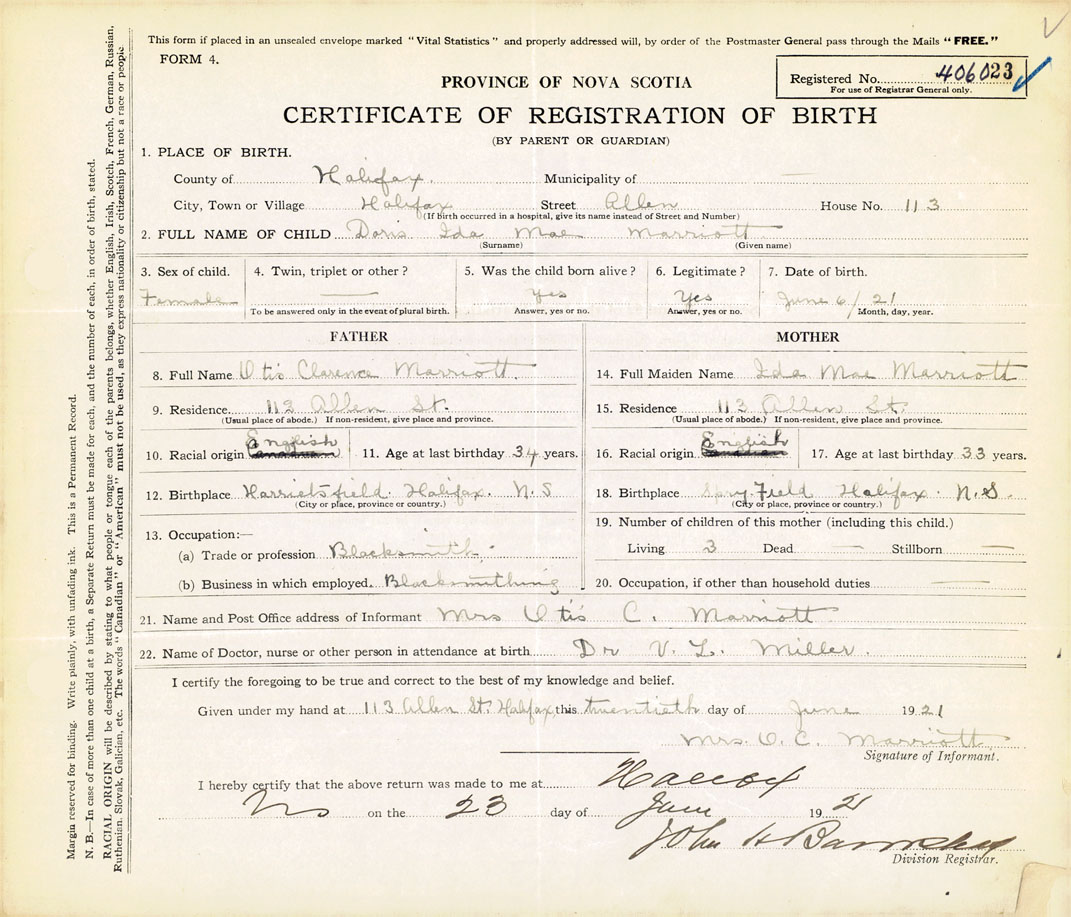 This form if placed in an unsealed envelope marked "Vital Statistics" and properly addressed will, by order of the Postmaster General pass through the Mails "FREE."
FORM 4.
Registered No. 406023
For use of Registrar General only.
PROVINCE OF NOVA SCOTIA
CERTIFICATE OF REGISTRATION OF BIRTH
(BY PARENT OR GUARDIAN)
1. PLACE OF BIRTH.
County of Halifax. Municipality of —
City, Town or Village Halifax Street Allen House No. 113
(If birth occurred in a hospital, give its name instead of Street and Number)
2. FULL NAME OF CHILD Doris Ida Mae Marriott
(Surname) (Given name)
3. Sex of child. 4. Twin, triplet or other? 5. Was the child born alive? 6. Legitimate? 7. Date of birth.
Female — Yes Yes June 6/21
To be answered only in the event of plural birth. Answer, yes or no. Answer, yes or no. Month, day, year.
FATHER
8. Full Name Otis Clarence Marriott
9. Residence 113 Allen St.
(Usual place of abode.) If non-resident, give place and province.
English
10. Racial origin Canadian 11. Age at last birthday 34 years.
12. Birthplace Harrietsfield. Halifax. N.S
(City or place, province or country.)
13. Occupation:—
(a) Trade or profession Blacksmith.
(b) Business in which employed. Blacksmithing
MOTHER
14. Full Maiden Name Ida Mae Marriott
15. Residence 113 Allen St.
(Usual place of abode.) If non-resident, give place and province.
English
16. Racial origin Canadian 17. Age at last birthday 33 years.
18. Birthplace Spry-Field Halifax N.S.
(City or place, province or country.)
19. Number of children of this mother (including this child.)
Living 3 Dead — Stillborn —
20. Occupation, if other than household duties —
21. Name and Post Office address of Informant Mrs Otis C. Marriott
22. Name of Doctor, nurse or other person in attendance at birth Dr V. L. Miller.
I certify the foregoing to be true and correct to the best of my knowledge and belief.
Given under my hand at 113 Allen St. Halifax, this twentieth day of June 1921
Mrs. O. C. Marriott
Signature of Informant.
I hereby certify that the above return was made to me at Halifax
NS on the 23 day of June 1921
John H
Division Registrar.
Margin reserved for binding. Write plainly, with unfading ink. This is a Permanent Record.
N. B.—In case of more than one child at a birth, a Separate Return must be made for each, and the number of each, in order of birth, stated.
RACIAL ORIGIN will be described by stating to what people or tongue each of the parents belongs, whether English, Irish, Scotch, French, German, Russian,
Ruthenian, Slovak, Galician, etc. The words "Canadian" or "American" must not be used, as they express nationality or citizenship but not a race or people